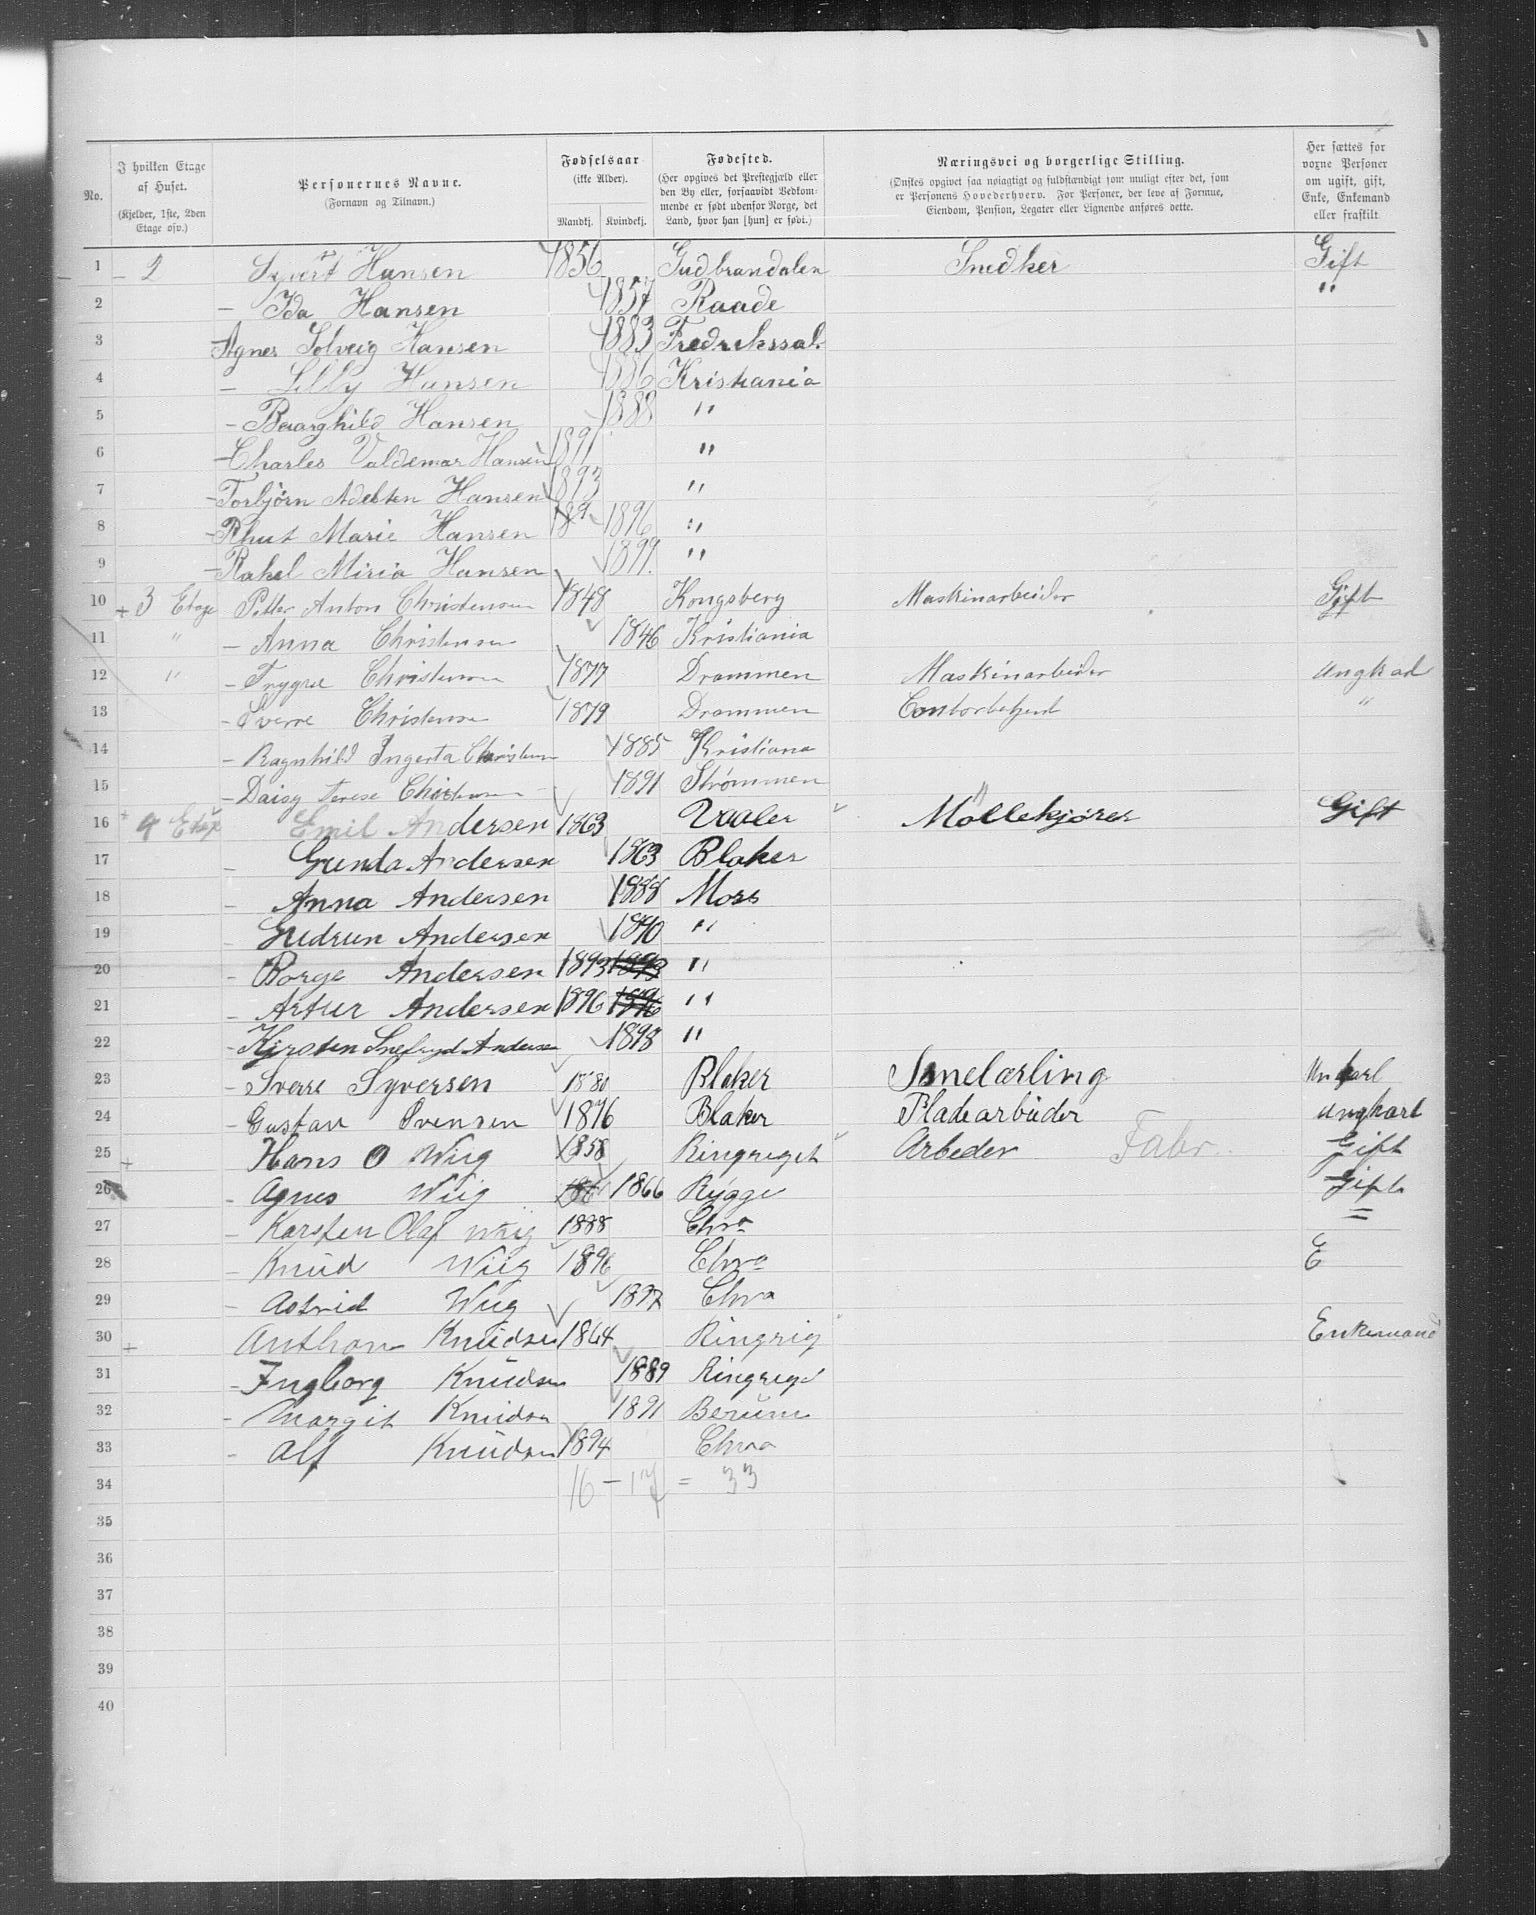 No.
I hvilken Etage af Huset. (Kjelder, 1ste, 2den Etage osv.)
Personernes Navne. (Fornavn og Tilnavn.)
Fødselsaar (ikke Alder).
Mandkj. Kvindekj.
Fødested. (Her opgives det Prestegjæld eller den By eller, forsaavidt Vedkommende er født udenfor Norge, det Land, hvor han [hun] er født.)
Næringsvei og borgerlige Stilling. (Ønskes opgivet saa nøiagtigt og fuldstændigt som muligt efter det, som er Personens Hovederhverv. For Personer, der leve af Formue, Eiendom, Pension, Legater eller Lignende anføres dette.
Her sættes for voxne Personer om ugift, gift, Enke, Enkemand eller fraskilt
1 – 2 Syvert Hansen 1856 Gudbrandalen Snedker Gift
2 – Ida Hansen 1857 Raade "
3 Agnes Solveig Hansen 1883 Fredrikssal.
4 – Lilly Hansen 1886 Kristiania
5 – Baarghild Hansen 1888 "
6 – Charles Valdemar Hansen 1891 "
7 – Torbjørn Adelsten Hansen 1893 "
8 – Rhut Marie Hansen 189 1896 "
9 – Rakel Miria Hansen 1899. "
10 + 3 Etage Petter Anton Christensen 1848 Kongsberg Maskinarbeider Gift
11 " – Anna Christensen 1846 Kristiania
12 " – Trygve Christensen 1877 Drammen Maskinarbeider Ungkarl
13 – Sverre Christensen 1879 Drammen Contorbetjent "
14 – Ragnhild Ingerta Christensen 1885 Kristiana
15 – Daisy Terese Christensen 1891 Strømmen
16 + 4 Etage Emil Andersen 1863 Vaaler Møllekjører Gift
17 – Gunda Andersen 1863 Blaker
18 – Anna Andersen 1888 Moss
19 – Gudrun Andersen 1890 "
20 – Borge Andersen 1893 1893 "
21 – Artur Andersen 1896 1896 "
22 – Kirsten Snefryd Andersen 1898 "
23 – Sverre Syversen 1880 Blaker Smelærling Unkarl
24 – Gustav Svensen 1876 Blaker Pladearbüder Ungkarl
25 + Hans O Wiig 1858 Ringreget Arbeder Fabr. Gift
26 – Agnes Wiig 1866 Rygge Gift
27 – Karsten Olaf Wiig 1888 Chra =
28 – Knud Wiig 1896 Chra E
29 – Astrid Wiig 1897 Chra
30 + Anthon Knüdsen 1864 Ringrig Enkemand
31 – Ingborg Knüdsen 1889 Ringrige
32 – Margit Knüdsen 1891 Berüm
33 – Alf Knüdsen 1894 Chra
34 16 – 17 = 33
35
36
37
38
39
40